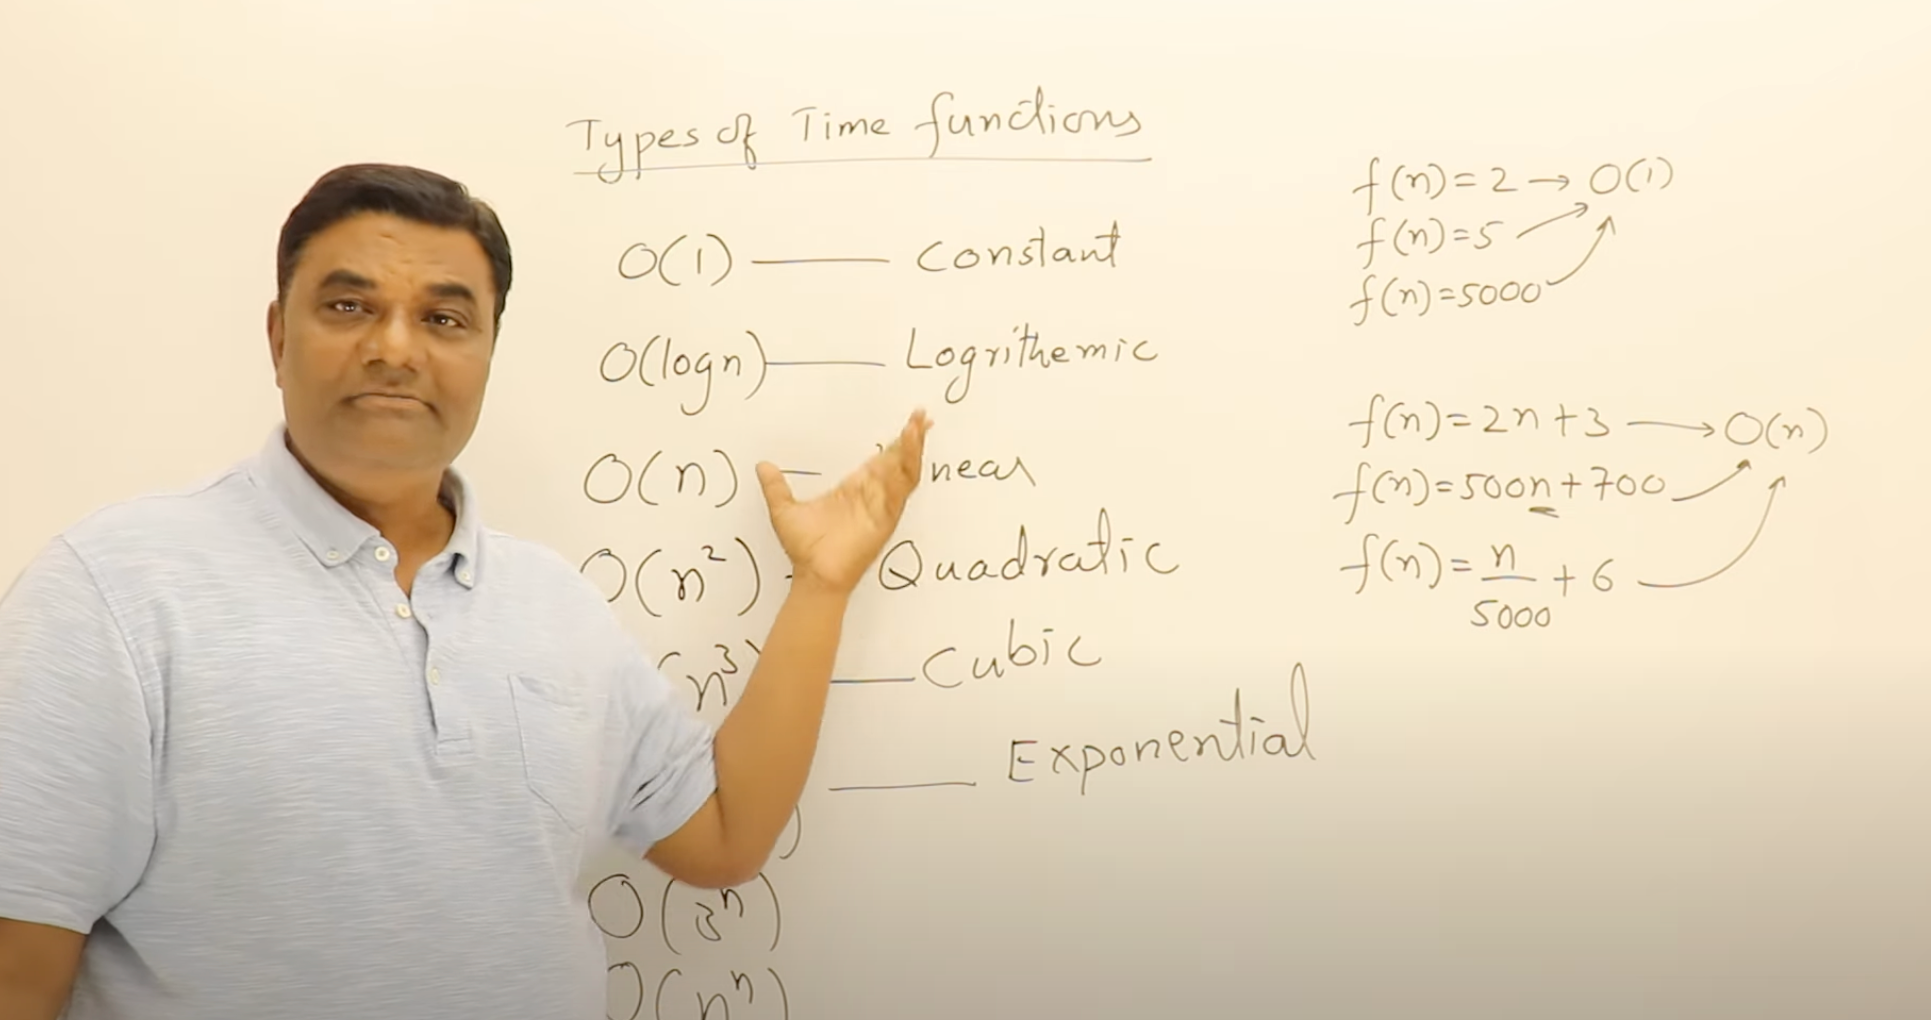 Types of Time functions
O(1) —— Constant
O(logn) —— Logrithemic
O(n) —
O(n²) - Quadratic
n³) —— Cubic
—— Exponential
)
O(3ⁿ)
O(nⁿ)
f(n)=2 → O(1)
f(n)=5
f(n)=5000
f(n)=2n+3 → O(n)
f(n)=500n+700
f(n)=n/5000+6